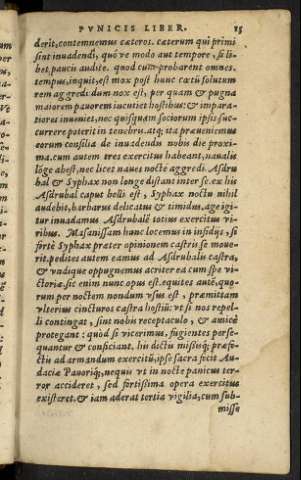 PVNICIS LIBER. 15
derit, contemnemus cæteros. cæterum qui primi
sint inuadendi, quó ve modo aut tempore, si li-
bet, paucis audite. quod cum probarent omnes,
tempus, inquit, est mox post hunc cœtũ solutum
rem aggredi: dum nox est, per quam & pugna
maiorem pauorem iucutiet hostibus: & impara-
tiores inueniet, nec quisquam sociorum ipsis suc-
currere poterit in tenebris. atq; ita præueniemus
eorum consilia de inuadendu nobis die proxi-
ma. cum autem tres exercitus habeant, naualis
lõge abest, nec licet naues nocte aggredi. Asdru
bal & Syphax non longe distant inter se. ex his
Asdrubal caput belli est, Syphax noctu nihil
audebit, barbarus delicatus & timidus. age igi-
tur inuadamus Asdrubalẽ totius exercitus vi-
ribus. Masanissam hunc locemus in insidijs, si
fortè Syphax præter opinionem castris se moue-
rit. pedites autem eamus ad Asdrubalis castra,
& vndique oppugnemus acriter ea cum spe vi-
ctoriæ. sic enim nunc opus est. equites autẽ, quo-
rum per noctem nondum vsus est, præmittam
vlterius cincturos castra hostiũ: vt si nos repel-
li contingat, sint nobis receptaculo, & amicè
protegant: quòd si vicerimus, fugientes perse-
quantur & conficiant. his dictis misisq; præfe-
ctis ad armandum exercitũ, ipse sacra fecit Au-
daciæ Pauoriq;, nequis vt in nocte panicus ter-
ror accideret, sed fortissima opera exercitus
existeret. & iam aderat tertia vigilia, cum sub-
misse